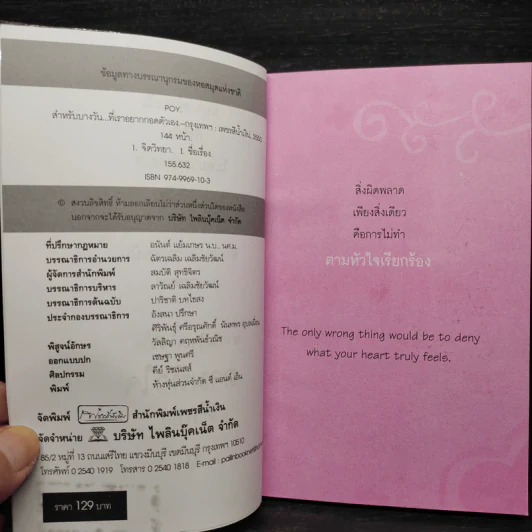 ข้อมูลทางบรรณานุกรมของหอสมุดแห่งชาติ
POY.
สำหรับบางวัน...ที่เราอยากกอดตัวเอง.--กรุงเทพฯ : เพชรสีน้ำเงิน,
144 หน้า.
1. จิตวิทยา. I. ชื่อเรื่อง.
155.632
ISBN 974-9969-10-3
© สงวนลิขสิทธิ์ ห้ามลอกเลียนไม่ว่าส่วนหนึ่งส่วนใดของหนังสือ
นอกจากจะได้รับอนุญาตจาก บริษัท ไพลินบุ๊คเน็ต จำกัด
ที่ปรึกษากฎหมาย อนันต์ แย้มเกษร น.บ., นศ.ม.
บรรณาธิการอำนวยการ ฉัตรเฉลิม เฉลิมชัยวัฒน์
ผู้จัดการสำนักพิมพ์ สมบัติ สุทธิจิตร
บรรณาธิการบริหาร ลาวัณย์ เฉลิมชัยวัฒน์
บรรณาธิการต้นฉบับ ปาริชาติ บทไชสง
ประจำกองบรรณาธิการ อังสนา ปรึกษา
ศิริพันธุ์ ศรีอรุณศักดิ์ นันทพร
พิสูจน์อักษร วัลลิญา
ออกแบบปก เชษฐา พูนศรี
ศิลปกรรม คีย์ ริชเนสส์
พิมพ์ ห้างหุ้นส่วนจำกัด ซี แอนด์ เอ็น
จัดพิมพ์ สำนักพิมพ์เพชรสีน้ำเงิน
จัดจำหน่าย บริษัท ไพลินบุ๊คเน็ต จำกัด
85/2 หมู่ที่ 13 ถนนเสรีไทย แขวงมีนบุรี เขตมีนบุรี กรุงเทพฯ 10510
โทรศัพท์ 0 2540 1919 โทรสาร 0 2540 1818 E-mail :
ราคา 129 บาท
สิ่งผิดพลาด
เพียงสิ่งเดียว
คือการไม่ทำ
ตามหัวใจเรียกร้อง
The only wrong thing would be to deny
what your heart truly feels.